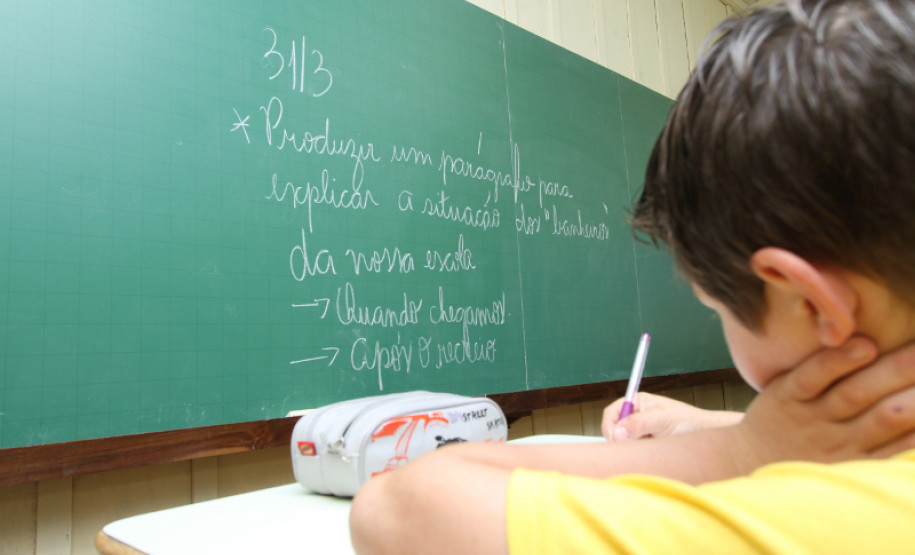 31/3
* Produzir um parágrafo para
explicar a situação dos "banheiros"
da nossa escola
→ Quando chegamos.
→ Após o recreio
STREET